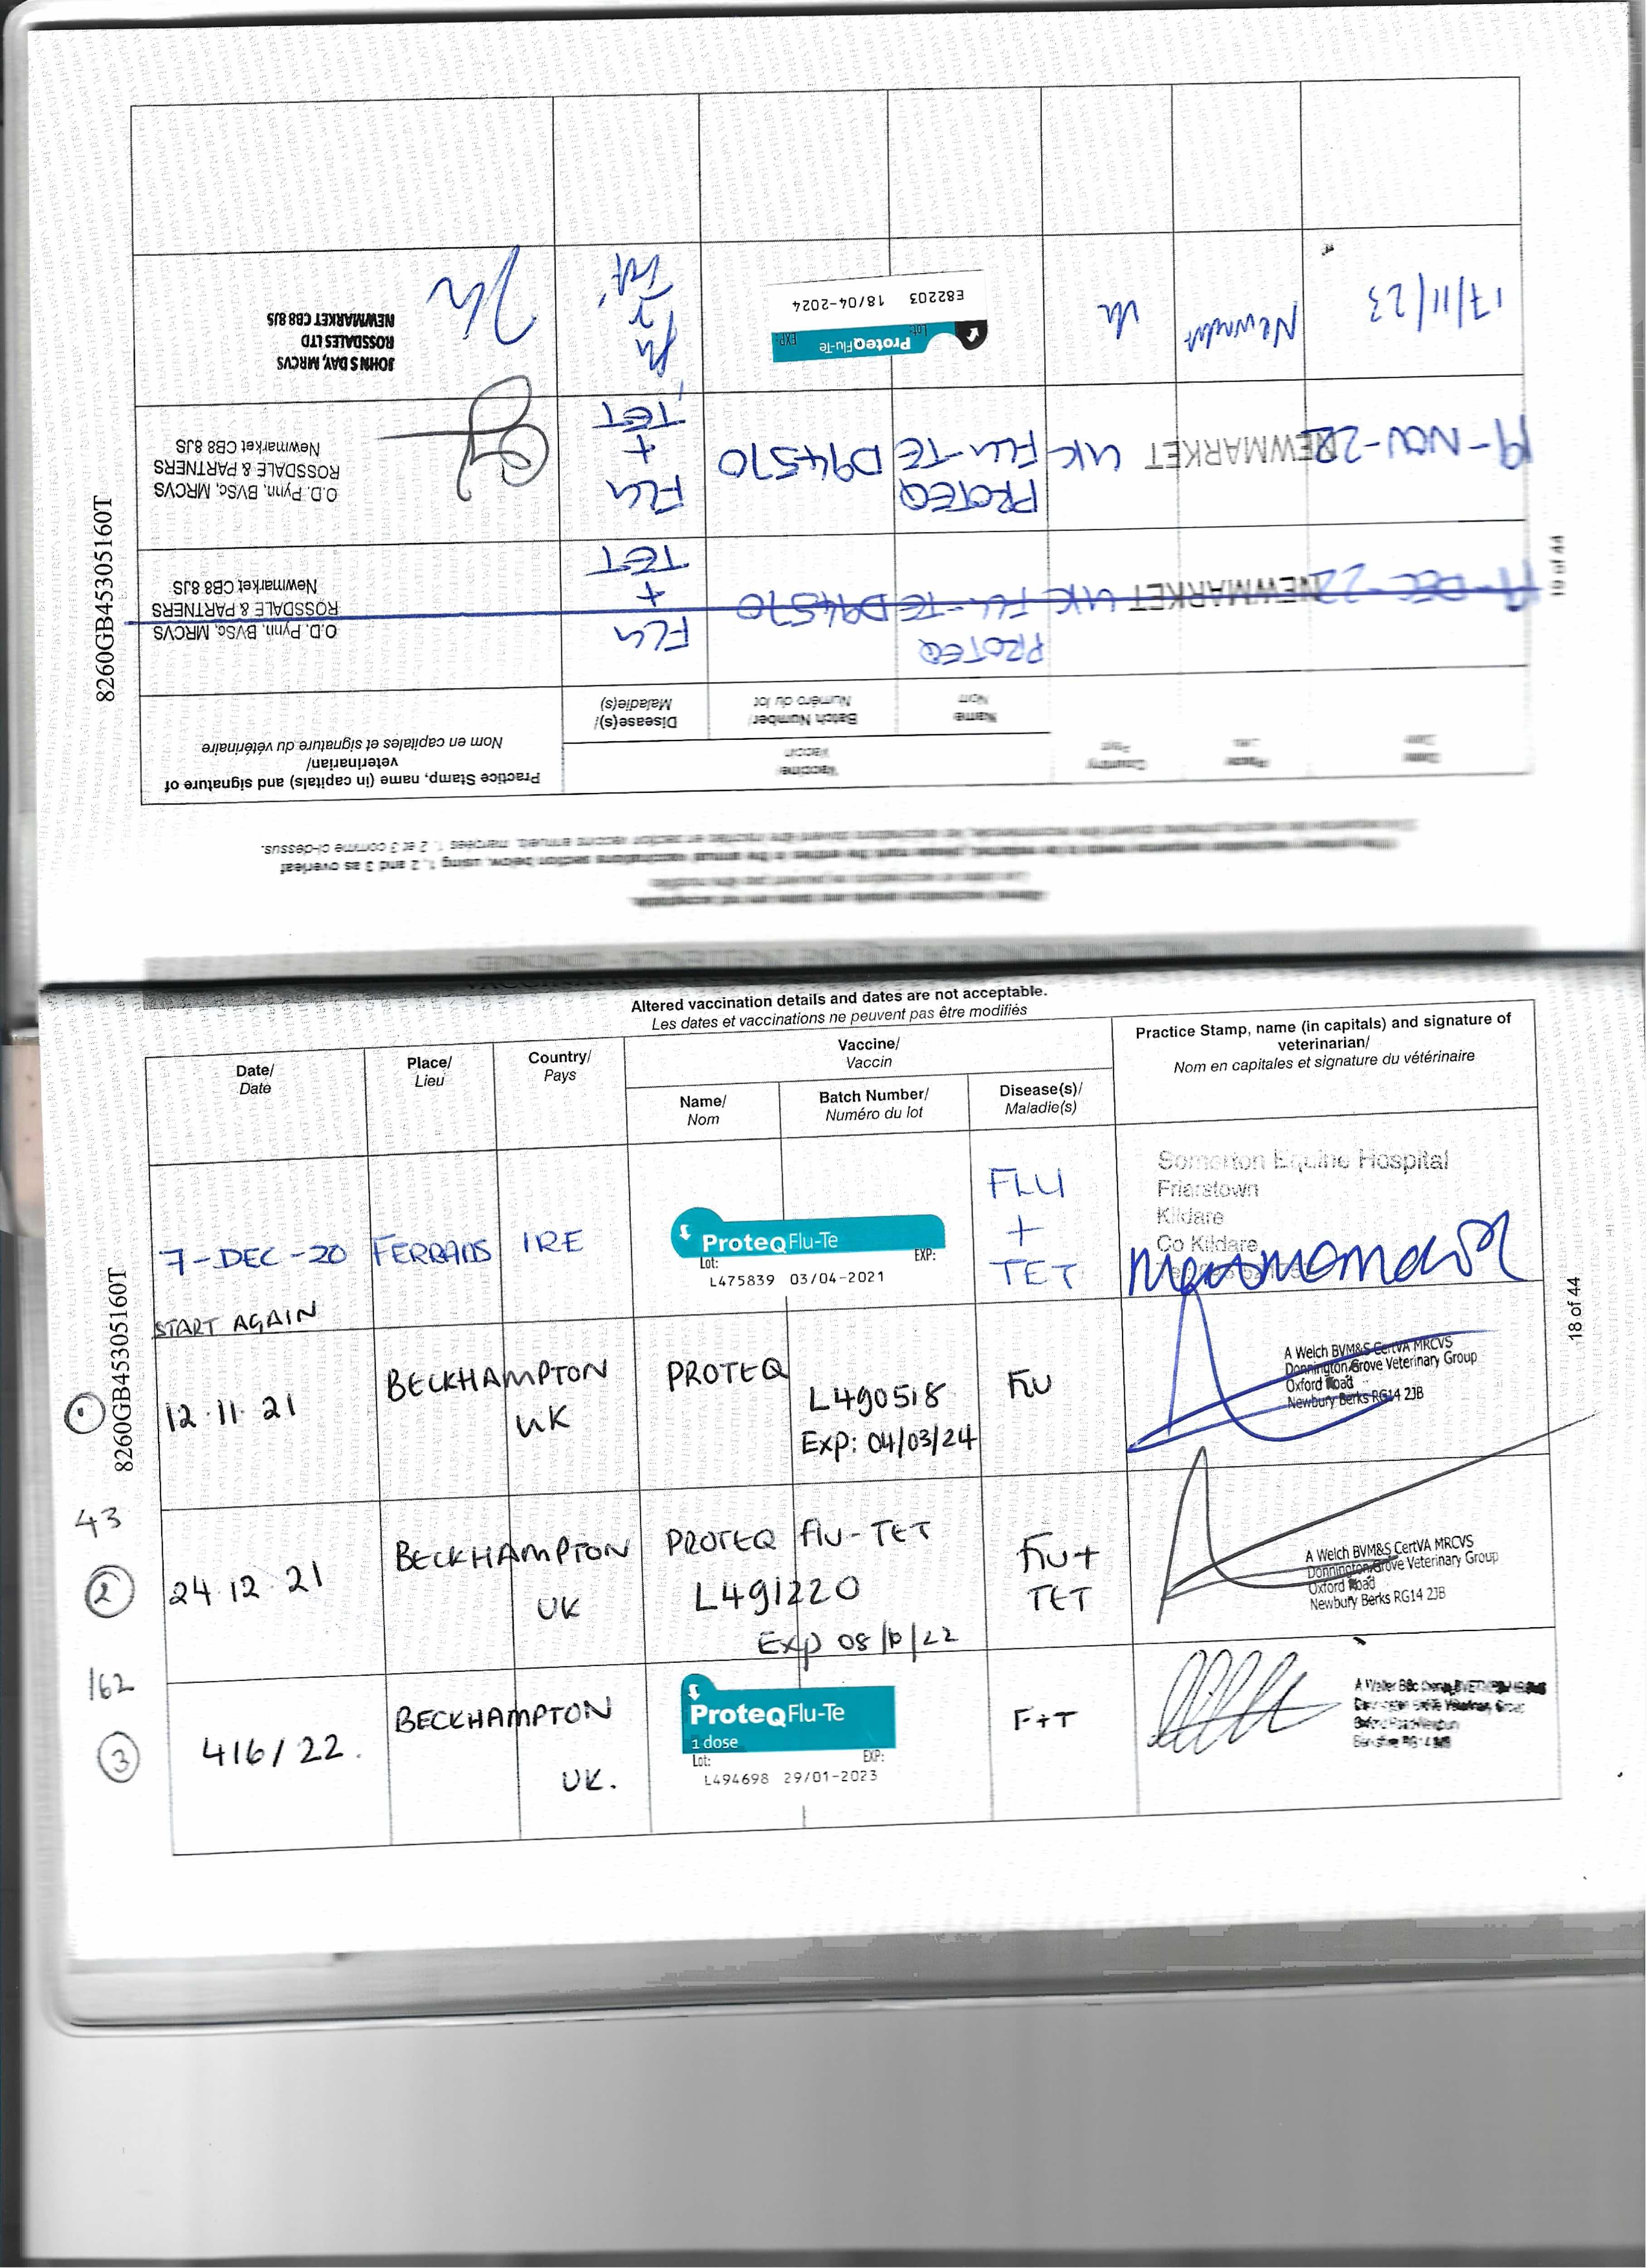 Altered vaccination details and dates are not acceptable.
Les dates et vaccinations ne peuvent pas être modifiés
Date/
Date
Place/
Lieu
Country/
Pays
Vaccine/
Vaccin
Name/
Nom
Batch Number/
Numéro du lot
Disease(s)/
Maladie(s)
Practice Stamp, name (in capitals) and signature of
veterinarian/
Nom en capitales et signature du vétérinaire
7-DEC-20
FERBANS
IRE
ProteqFlu-Te
Lot:
EXP:
L475839 03/04-2021
FLU
+
TET
Somerton Equine Hospital
Friarstown
Kildare
Co Kildare
START AGAIN
①
12.11.21
BECKHAMPTON
UK
PROTEQ
L490518
Exp: 04/03/24
FLU
A Welch BVM&S CertVA MRCVS
Donnington Grove Veterinary Group
Oxford Road
Newbury Berks RG14 2JB
43
②
24.12.21
BECKHAMPTON
UK
PROTEQ flu-TET
L491220
Exp 08/10/22
FLU+
TET
A Welch BVM&S CertVA MRCVS
Donnington Grove Veterinary Group
Oxford Road
Newbury Berks RG14 2JB
162
③
4/6/22.
BECKHAMPTON
UK.
ProteqFlu-Te
1 dose
Lot:
EXP:
L494698 29/01-2023
F+T
8260GB45305160T
18 of 44
Altered vaccination details and dates are not acceptable.
Date
Date
Place
Lieu
Country
Pays
Vaccine
Vaccin
Name
Nom
Batch Number/
Numéro du lot
Disease(s)/
Maladie(s)
Practice Stamp, name (in capitals) and signature of
veterinarian/
Nom en capitales et signature du vétérinaire
19-DEC-22
NEWMARKET
UK
PROTEQ
FLU-TE
D94570
FLU
+
TET
O.D. Pynn, BVSc, MRCVS
ROSSDALE & PARTNERS
Newmarket CB8 8JS
19-NOV-22
NEWMARKET
UK
PROTEQ
FLU-TE
D94570
FLU
+
TET
O.D. Pynn, BVSc, MRCVS
ROSSDALE & PARTNERS
Newmarket CB8 8JS
17/11/23
Newmarket
UK
ProteqFlu-Te
Lot:
EXP:
E82203 18/04-2024
Flu
+
Tet
JOHN S DAY, MRCVS
ROSSDALES LTD
NEWMARKET CB8 8JS
8260GB45305160T
19 of 44